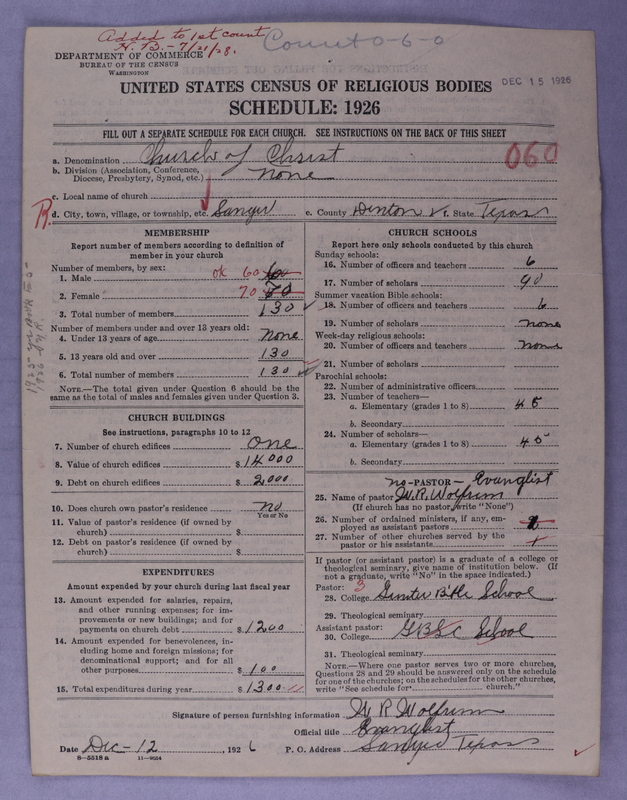 Added to 1st count
H. B. - 7/21/28.
Count 0-6-0
DEPARTMENT OF COMMERCE
BUREAU OF THE CENSUS
WASHINGTON
DEC 15 1926
UNITED STATES CENSUS OF RELIGIOUS BODIES
SCHEDULE: 1926
FILL OUT A SEPARATE SCHEDULE FOR EACH CHURCH. SEE INSTRUCTIONS ON THE BACK OF THIS SHEET
a. Denomination Church of Christ
060
b. Division (Association, Conference, Diocese, Presbytery, Synod, etc.) None
c. Local name of church
R. d. City, town, village, or township, etc. Sanger e. County Denton f. State Texas
MEMBERSHIP
Report number of members according to definition of
member in your church
Number of members, by sex:
1. Male ok 60 60
2. Female 70 70
3. Total number of members 130
Number of members under and over 13 years old:
4. Under 13 years of age None
5. 13 years old and over 130
6. Total number of members 130
NOTE.—The total given under Question 6 should be
same as the total of males and females given under Question 3.
CHURCH BUILDINGS
See instructions, paragraphs 10 to 12
7. Number of church edifices One
8. Value of church edifices $ 14000
9. Debt on church edifices $ 2000
10. Does church own pastor's residence? no
Yes or No
11. Value of pastor's residence (if owned by
church) $
12. Debt on pastor's residence (if owned by
church) $
EXPENDITURES
Amount expended by your church during last fiscal year
13. Amount expended for salaries, repairs,
and other running expenses; for im-
provements or new buildings; and for
payments on church debt $ 1200
14. Amount expended for benevolences, in-
cluding home and foreign missions; for
denominational support; and for all
other purposes $ 100
15. Total expenditures during year $ 1300
CHURCH SCHOOLS
Report here only schools conducted by this church
Sunday schools:
16. Number of officers and teachers 6
17. Number of scholars 90
Summer vacation Bible schools:
18. Number of officers and teachers 6
19. Number of scholars none
Week-day religious schools:
20. Number of officers and teachers none
21. Number of scholars
Parochial schools:
22. Number of administrative officers
23. Number of teachers—
a. Elementary (grades 1 to 8) 45
b. Secondary
24. Number of scholars—
a. Elementary (grades 1 to 8) 45
b. Secondary
no - PASTOR - Evanglist
25. Name of pastor W. R. Wolfrum
(If church has no pastor, write "None")
26. Number of ordained ministers, if any, em-
ployed as assistant pastors
27. Number of other churches served by the
pastor or his assistants
If pastor (or assistant pastor) is a graduate of a college or
theological seminary, give name of institution below. (If
not a graduate, write "No" in the space indicated.)
Pastor: 3
28. College Gunter Bible School
29. Theological seminary
Assistant pastor:
30. College GBSC School
31. Theological seminary
NOTE.—Where one pastor serves two or more churches,
Questions 28 and 29 should be answered only on the schedule
for one of the churches; on the schedules for the other churches,
write "See schedule for church."
Signature of person furnishing information W R Wolfrum
Official title Evanglist
Date Dec - 12, 1926 P. O. Address Sanger Texas
8-5518a 11-9024